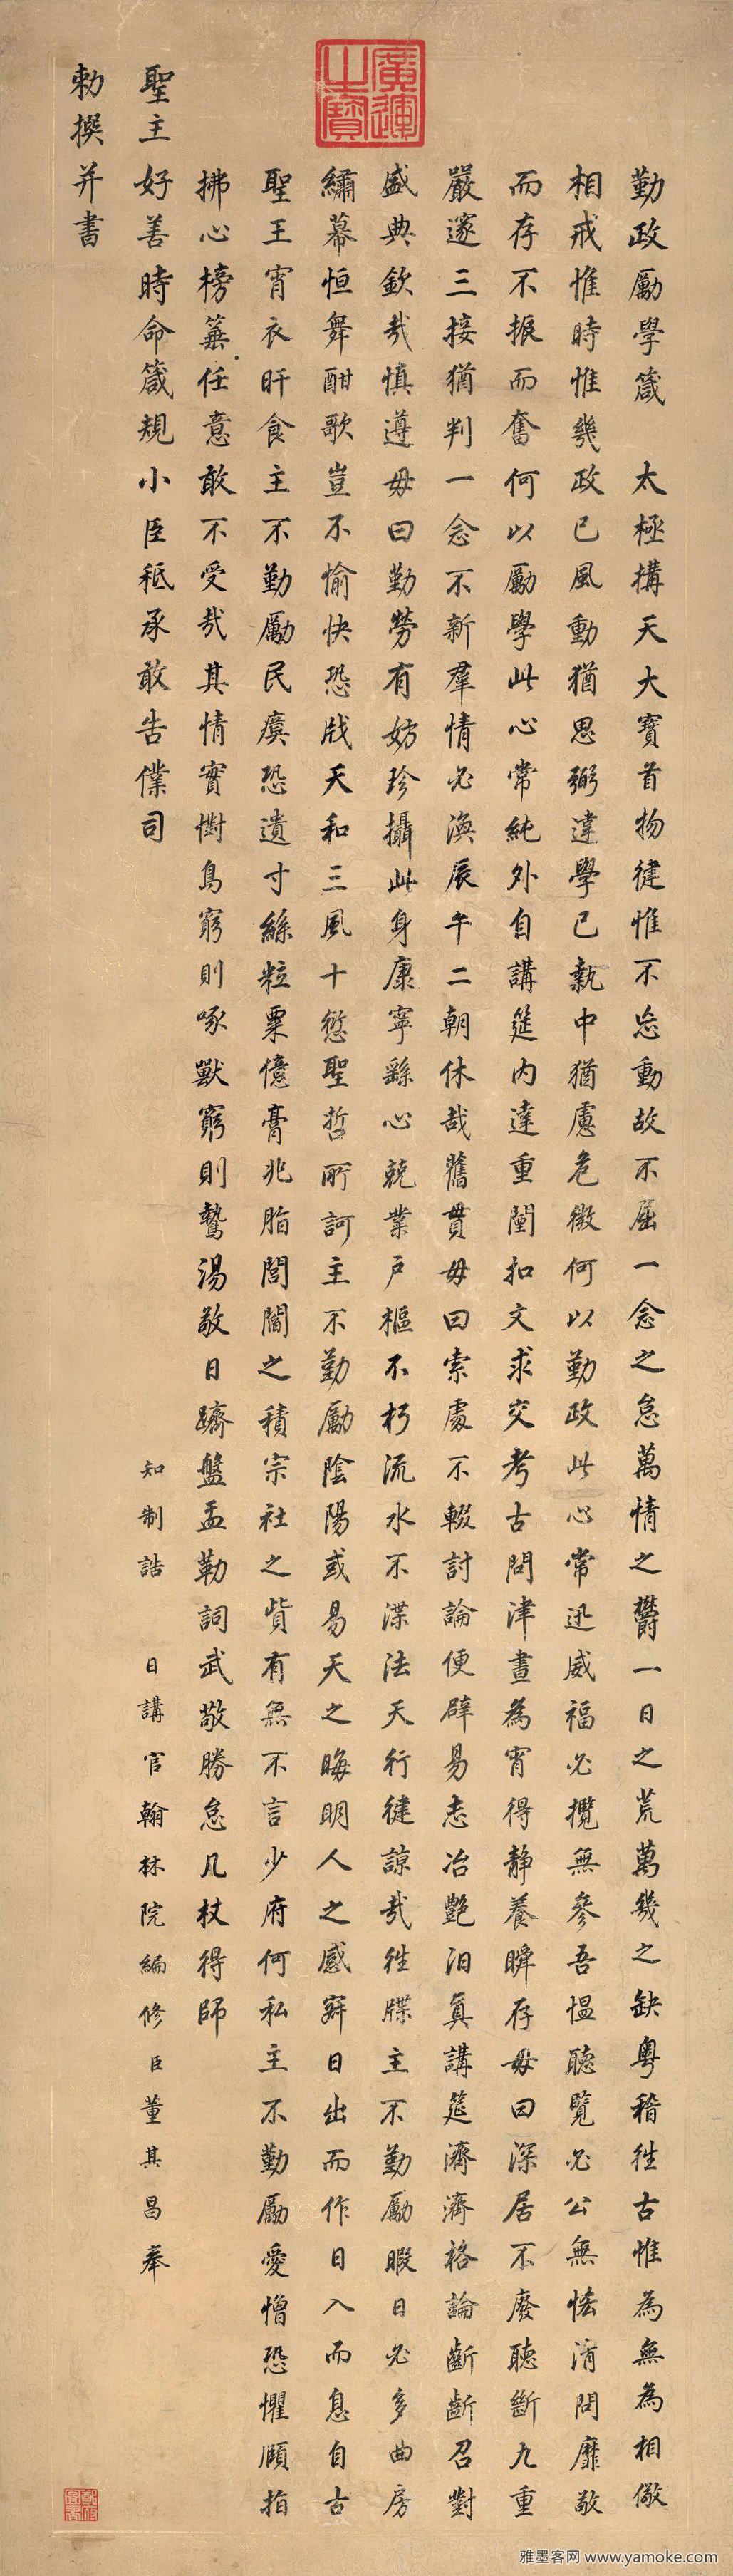 廣運之寶
勤政勵學箴　太極構天大寶首物健惟不忘動故不屈一念之怠萬情之欝一日之荒萬幾之缺粵稽徃古惟為無為相儆
相戒惟時惟幾政已風動猶思弼違學已執中猶慮危微何以勤政此心常迅威福必攬無參吾愠聽覽必公無恡清問靡敢
而存不振而奮何以勵學此心常純外自講筵內達重闉扣文求交考古問津晝為宵得靜養瞬存毋曰深居不廢聽斷九重
嚴邃三接猶判一念不新羣情必渙辰午二朝休哉舊貫毋曰索處不輟討論便辟易志冶艷汨真講筵濟濟格論齗齗召對
盛典欽哉慎遵毋曰勤勞有妨珍攝此身康寧繇心兢業戶樞不朽流水不渫法天行健諒哉徃牒主不勤勵暇日必多曲房
繡幕恒舞酣歌豈不愉快恐戕天和三風十愆聖哲所訶主不勤勵陰陽或易天之晦明人之感寐日出而作日入而息自古
聖王宵衣旰食主不勤勵民瘼恐遺寸絲粒粟億膏兆脂閭閻之積宗社之貲有無不言少府何私主不勤勵愛憎恐懼頤指
拂心榜箠任意敢不受哉其情實懟鳥窮則啄獸窮則鷙湯敬日躋盤盂勒詞武敬勝怠几杖得師
聖主好善時命箴規小臣秪承敢告僕司　知制誥　日講官翰林院編修臣董其昌奉
勅撰并書
雅墨客网 www.yamoke.com